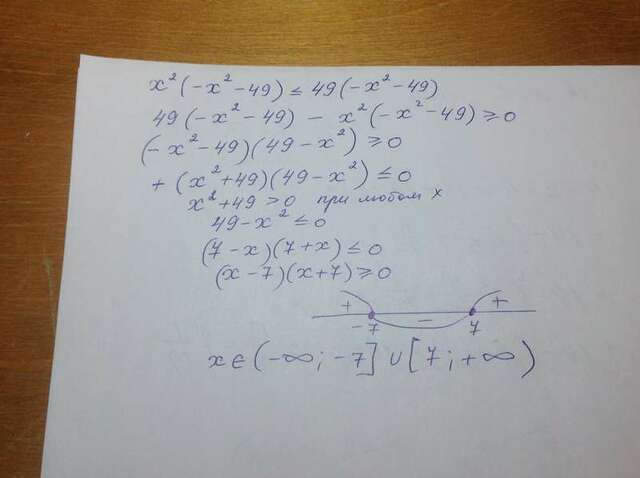 x²(-x²-49) ≤ 49(-x²-49)
49(-x²-49) - x²(-x²-49) ≥ 0
(-x²-49)(49-x²) ≥ 0
+ (x²+49)(49-x²) ≤ 0
x²+49 > 0 при любом x
49-x² ≤ 0
(7-x)(7+x) ≤ 0
(x-7)(x+7) ≥ 0
+ - +
-7 7
x∈(-∞; -7] ∪ [7; +∞)